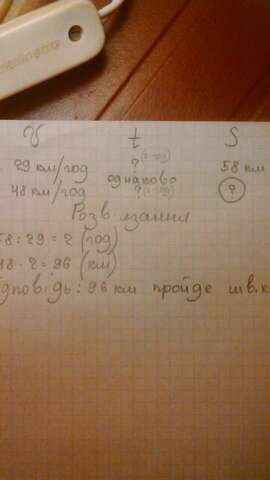 V t S
29 км/год ? (2 год) 58 км
однаково
48 км/год ? (2 год) ?
Розв'язання
58 : 29 = 2 (год)
48 · 2 = 96 (км)
ідповідь : 96 км пройде шв.к